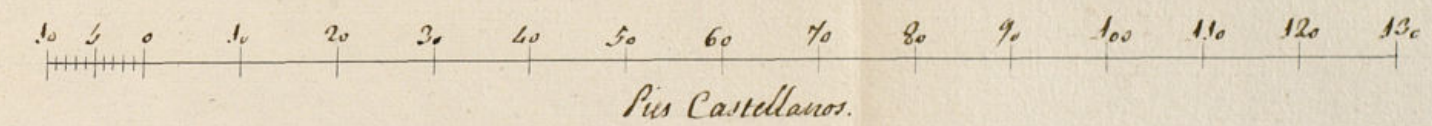 10 5 0 10 20 30 40 50 60 70 80 90 100 110 120 130
Pies Castellanos.